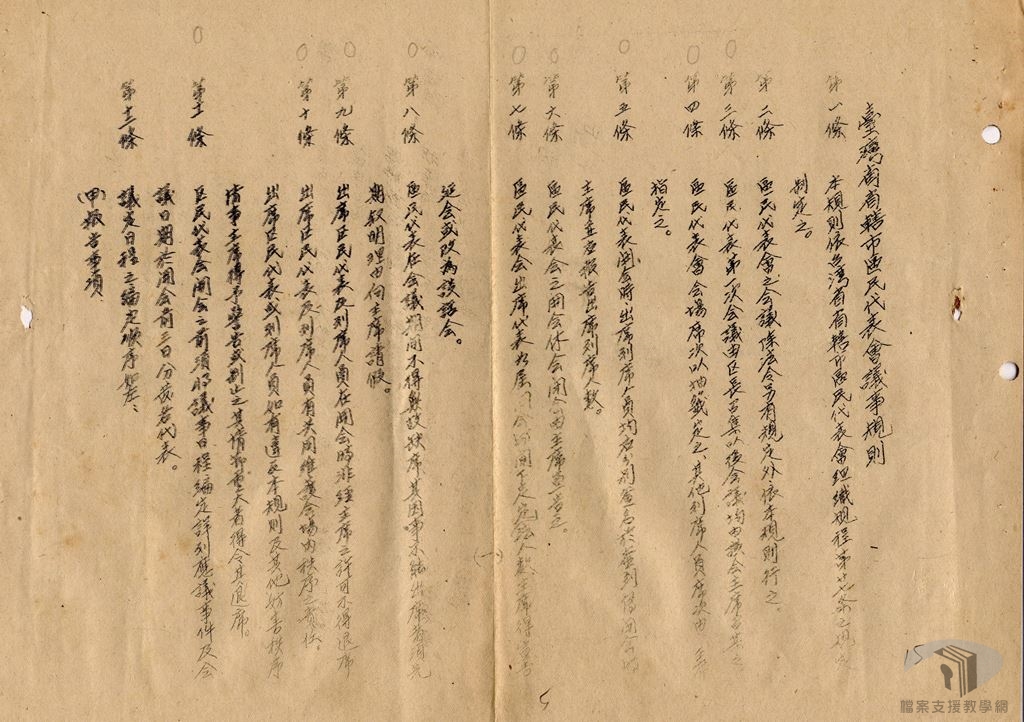 臺灣省省轄市區民代表會議事規則
第一條 本規則依台灣省省轄市區民代表會組織規程第廿七條之規定
制定之。
第二條 區民代表會之會議除法令另有規定外依本規則行之。
第三條 區民代表第一次会議由区長召集以後会議均由該会主席召集之
第四條 區民代表會會場席次以抽籤定之、其他列席人員席次由主席
指定之。
第五條 區民代表開會時出席列席人員均应分别簽名於簽到簿開会時
主席並应報告出席列席人数。
第六條 區民代表会之開会休会閉会由主席宣告之。
第七條 區民代表会出席代表如届開会時間不足定法人数主席得宣告
延会或改為談話会。
第八條 區民代表在会議期間不得無故缺席其因事不能出席者須先
期叙明理由向主席請假。
第九條 出席区民代表及列席人員在開会時非經主席之許可不得退席
第十條 出席区民代表及列席人員有共同維護会場内秩序之責任。
出席区民代表或列席人員如有違反本規則及其他妨害秩序
情事主席得予警告或制止之其情節重大者得令其退席。
第十一條 区民代表会開会之前須將議事日程編定詳列應議事件及会
議日期於開会前三日分发各代表。
第十二條 議定日程之編定順序如左：
(甲)報告事項、
(一)
5
15
檔案支援教學網